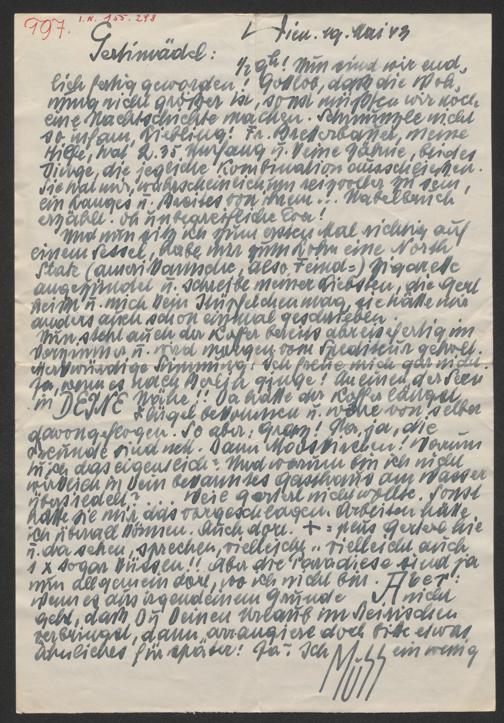 797.
I.N. 155.298
Wien. 19. Mai 43
Gertimädel:
1/2 9h! Nun sind wir end-
lich fertig geworden! Gottlob, daß die Woh-
nung nicht größer ist, sonst müßten wir noch
eine Nachtschichte machen. Schmunzle nicht
so infam, Liebling! Fr. meine
Hilfe, hat 2.35 Umfang u. keine Zähne, beides
Dinge, die jegliche Kombination ausschließen.
Sie hat mir, wahrscheinlich um reizvoller zu sein,
ein Langes u. Breites von ihrem ... Nabelbruch
erzählt. Oh unbegreifliche Eva!
Und nun sitz ich zum ersten Mal richtig auf
einem Sessel, habe mir zum Lohn eine North
State (amerikanische, also Feind-) Zigarette
angezündet u. schreibe meiner Liebsten, die Gert
heißt u. mich kein mag, sie hätte mir
anders auch schon einmal geschrieben.
Nun steht auch der Koffer bereits abreisefertig im
Vorzimmer u. wird morgen vom Spediteur geholt.
Merkwürdige Stimmung. Ich freue mich gar nicht.
Ja, wenn es nach ginge! An einen der Seen
in DEINE Nähe!! Da hätte der Koffer längst
Flügel bekommen u. wäre von selber
davongeflogen. So aber: Graz! Na, ja, die
Freunde sind nett. Dann Moos Warum
tu ich das eigentlich? Und warum bin ich nicht
wirklich in Dein bekanntes Gasthaus am Wasser
übersiedelt? ... Weil Gerterl nicht wollte. Sonst
hätte sie mir das vorgeschlagen. Arbeiten hätte
ich überall können. Auch dort. + = plus Gerterl hie
u. da sehen, sprechen, vielleicht .. vielleicht auch
1 x sogar küssen!! Aber die Paradiese sind ja
nun allgemein dort, wo ich nicht bin. Aber:
wenn es aus irgendeinem Grunde nicht
geht, daß Du Deinen Urlaub im Steirischen
verbringst, dann arrangiere doch bitte etwas
ähnliches für später! Ja? Ich ein wenig